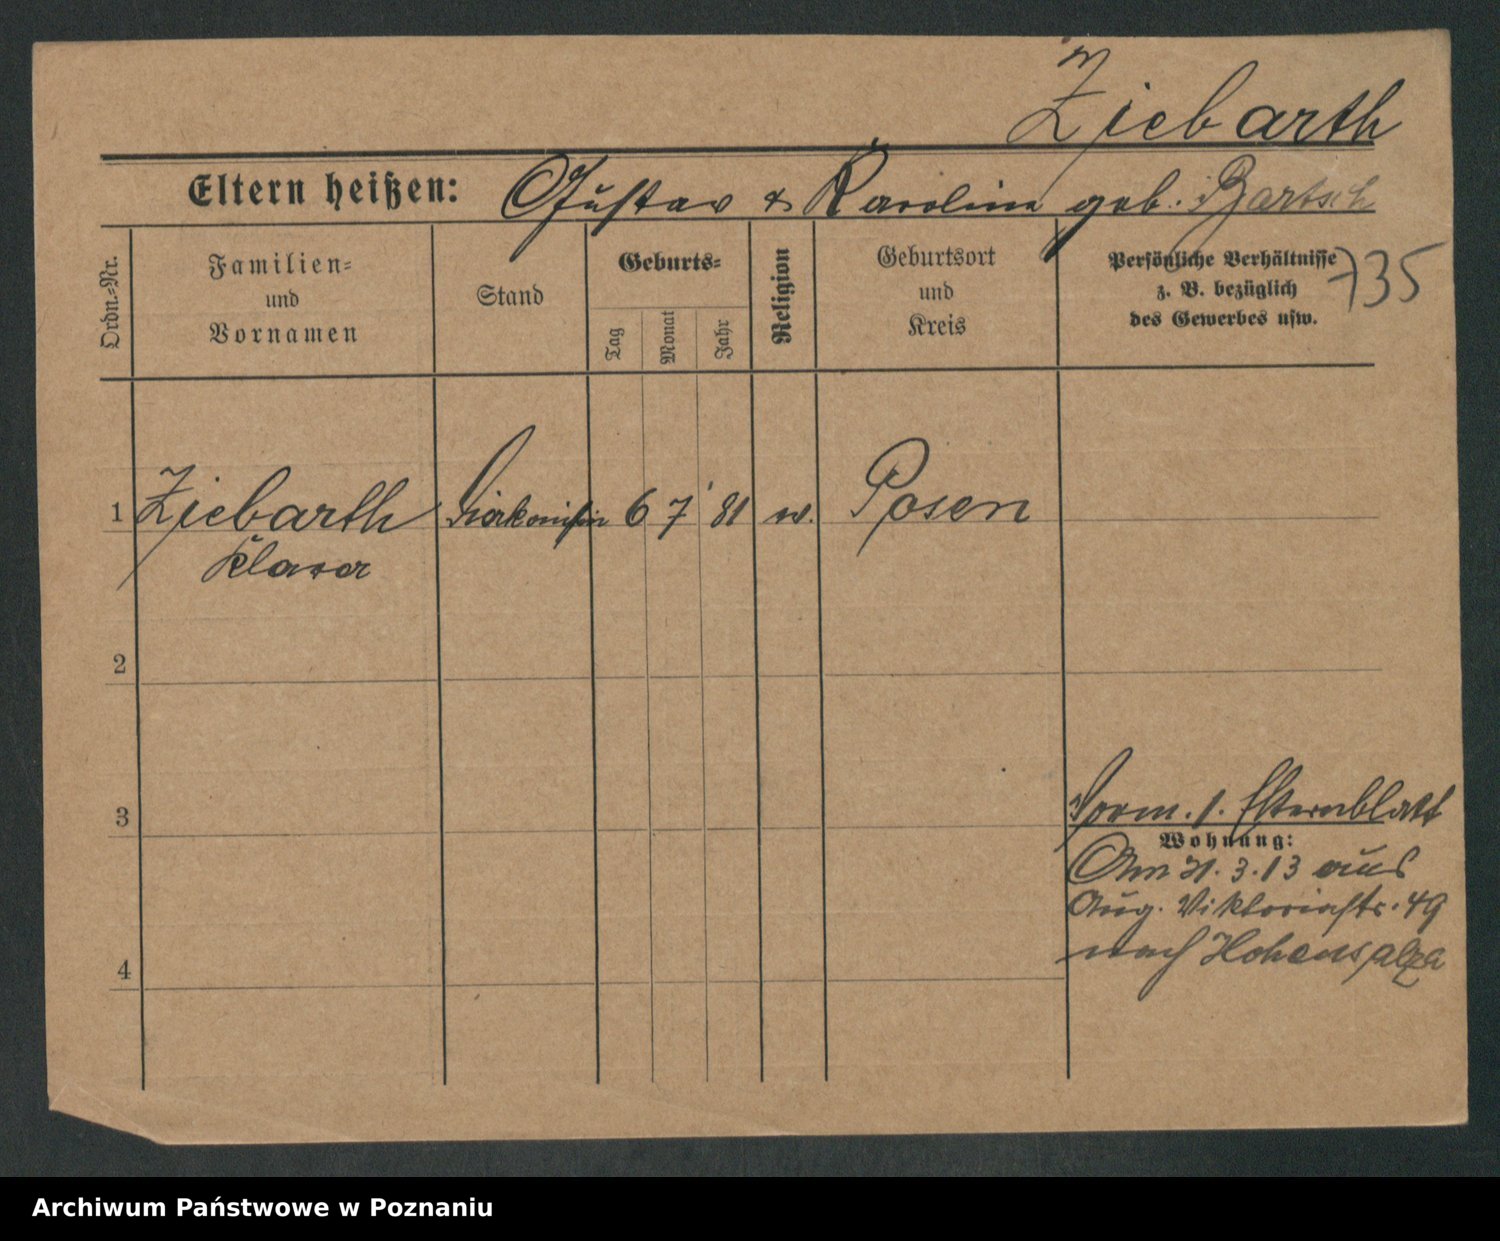 Ziebarth
Eltern heißen: Gustav & Karoline geb. Bartsch
735
Ordn.-Nr.
Familien-
und
Vornamen
Stand
Geburts-
Tag
Monat
Jahr
Religion
Geburtsort
und
Kreis
Persönliche Verhältnisse
z. B. bezüglich
des Gewerbes usw.
1 Ziebarth Diakonissin 6 7 81 Posen
Klara
2
3
Elternblatt
Wohnung:
Am 31.3.13 aus
Aug. Viktoriastr. 49
nach Hohensalza
4
Archiwum Państwowe w Poznaniu